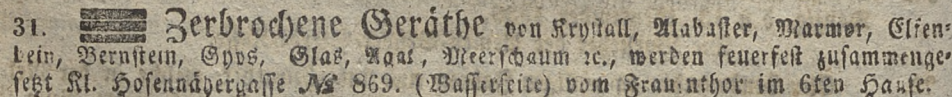 31. Zerbrochene Geräthe von Krystall, Alabaster, Marmor, Elfen-
bein, Bernstein, Gyps, Glas, Agat, Meerschaum ꝛc., werden feuerfest zusammenge-
setzt Kl. Hosennähergasse № 869. (Wasserseite) vom Frauenthor im 6ten Hause.